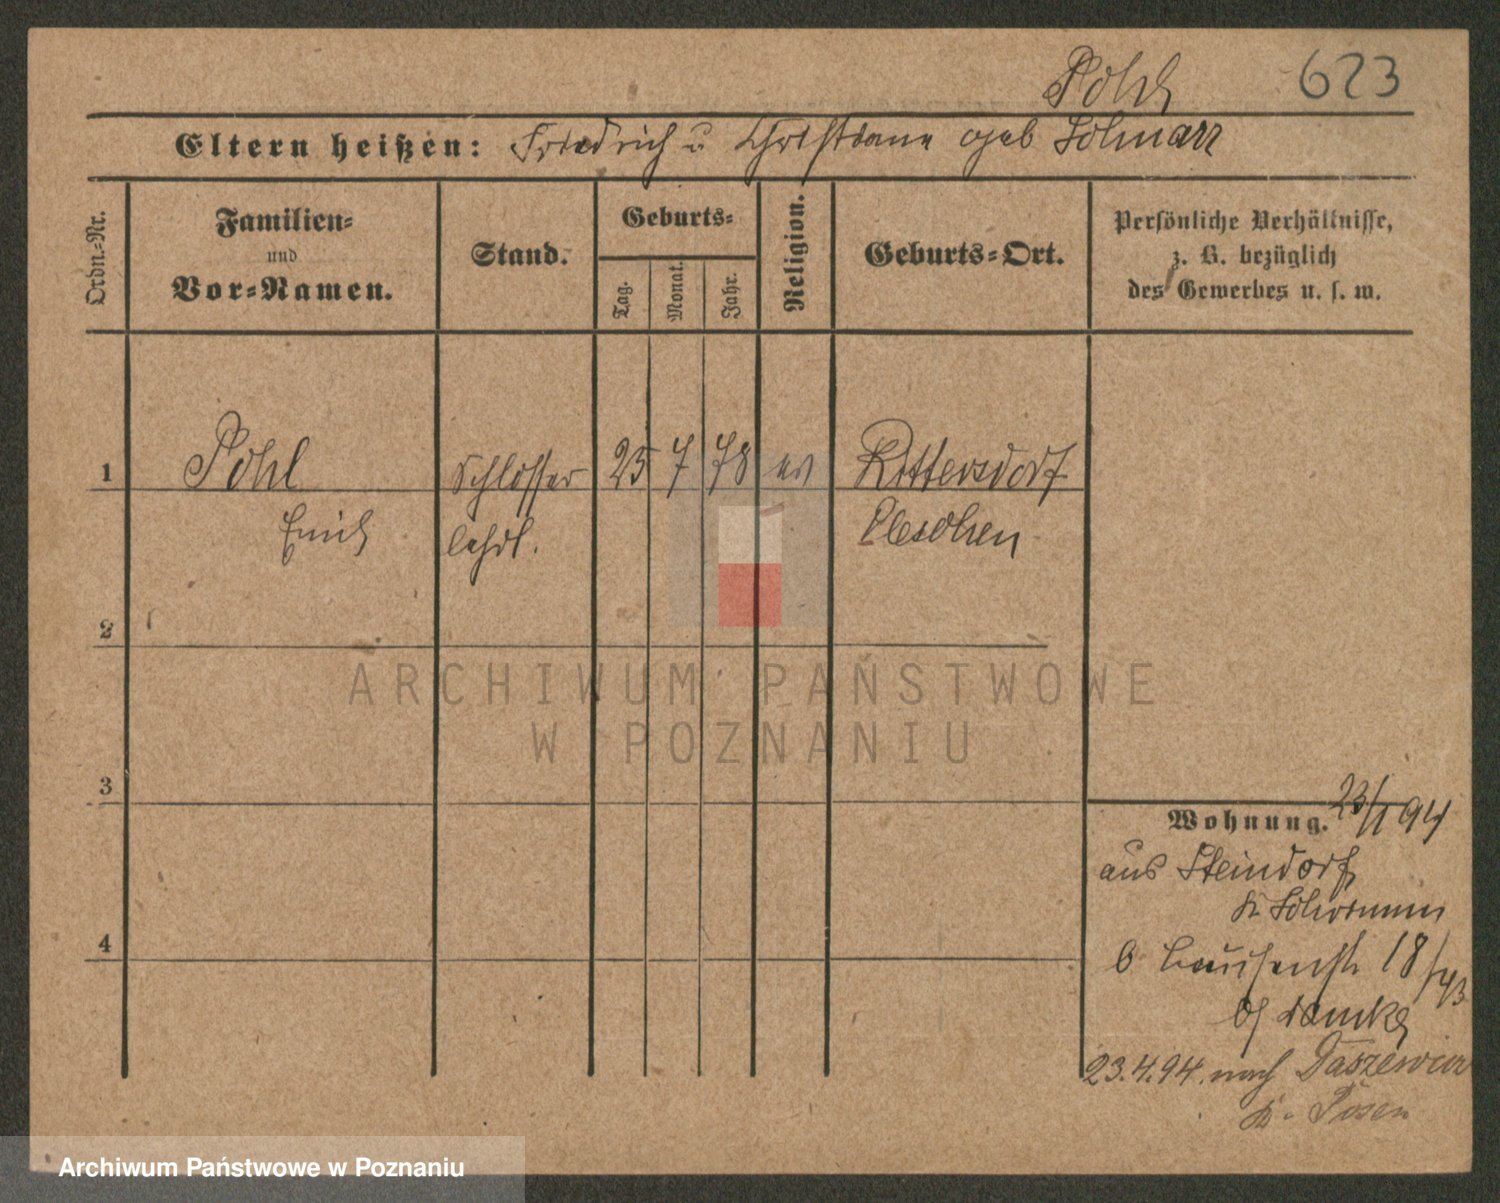 Pohl 623
Eltern heißen: Friedrich u Christiane geb Schwarz
Ordn.-Nr.
Familien-
und
Vor-Namen.
Stand.
Geburts-
Tag.
Monat.
Jahr.
Religion.
Geburts-Ort.
Persönliche Verhältnisse,
z. B. bezüglich
des Gewerbes u. s. w.
1 Pohl Schlosser 25 7 78 ev Rittersdorf
Emil lehrl.
2
3
4
Wohnung. 23/1 94
aus Steindorf
Kr
b 18/
b/
23.4.94. nach Daszewice
Kr. Posen
ARCHIWUM PAŃSTWOWE
W POZNANIU
Archiwum Państwowe w Poznaniu